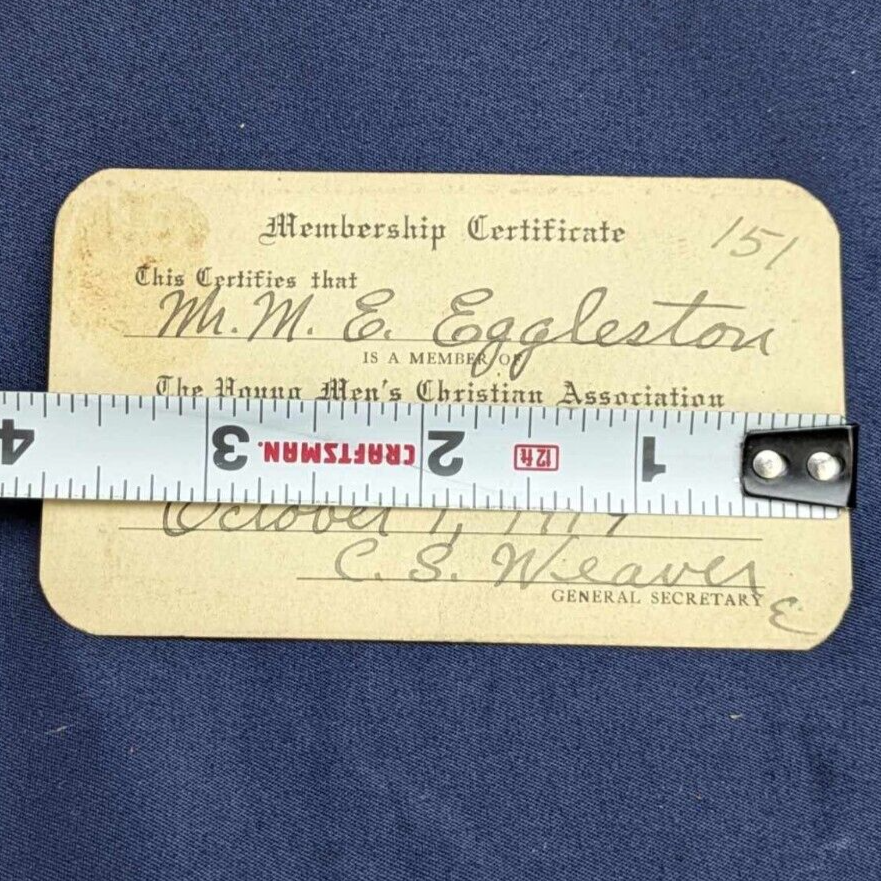 Membership Certificate
151
This Certifies that
Mr. M. E. Eggleston
IS A MEMBER OF
The Young Men's Christian Association
1
12ft
2
CRAFTSMAN.
3
4
October 1,
C. S. Weaver
GENERAL SECRETARY
E